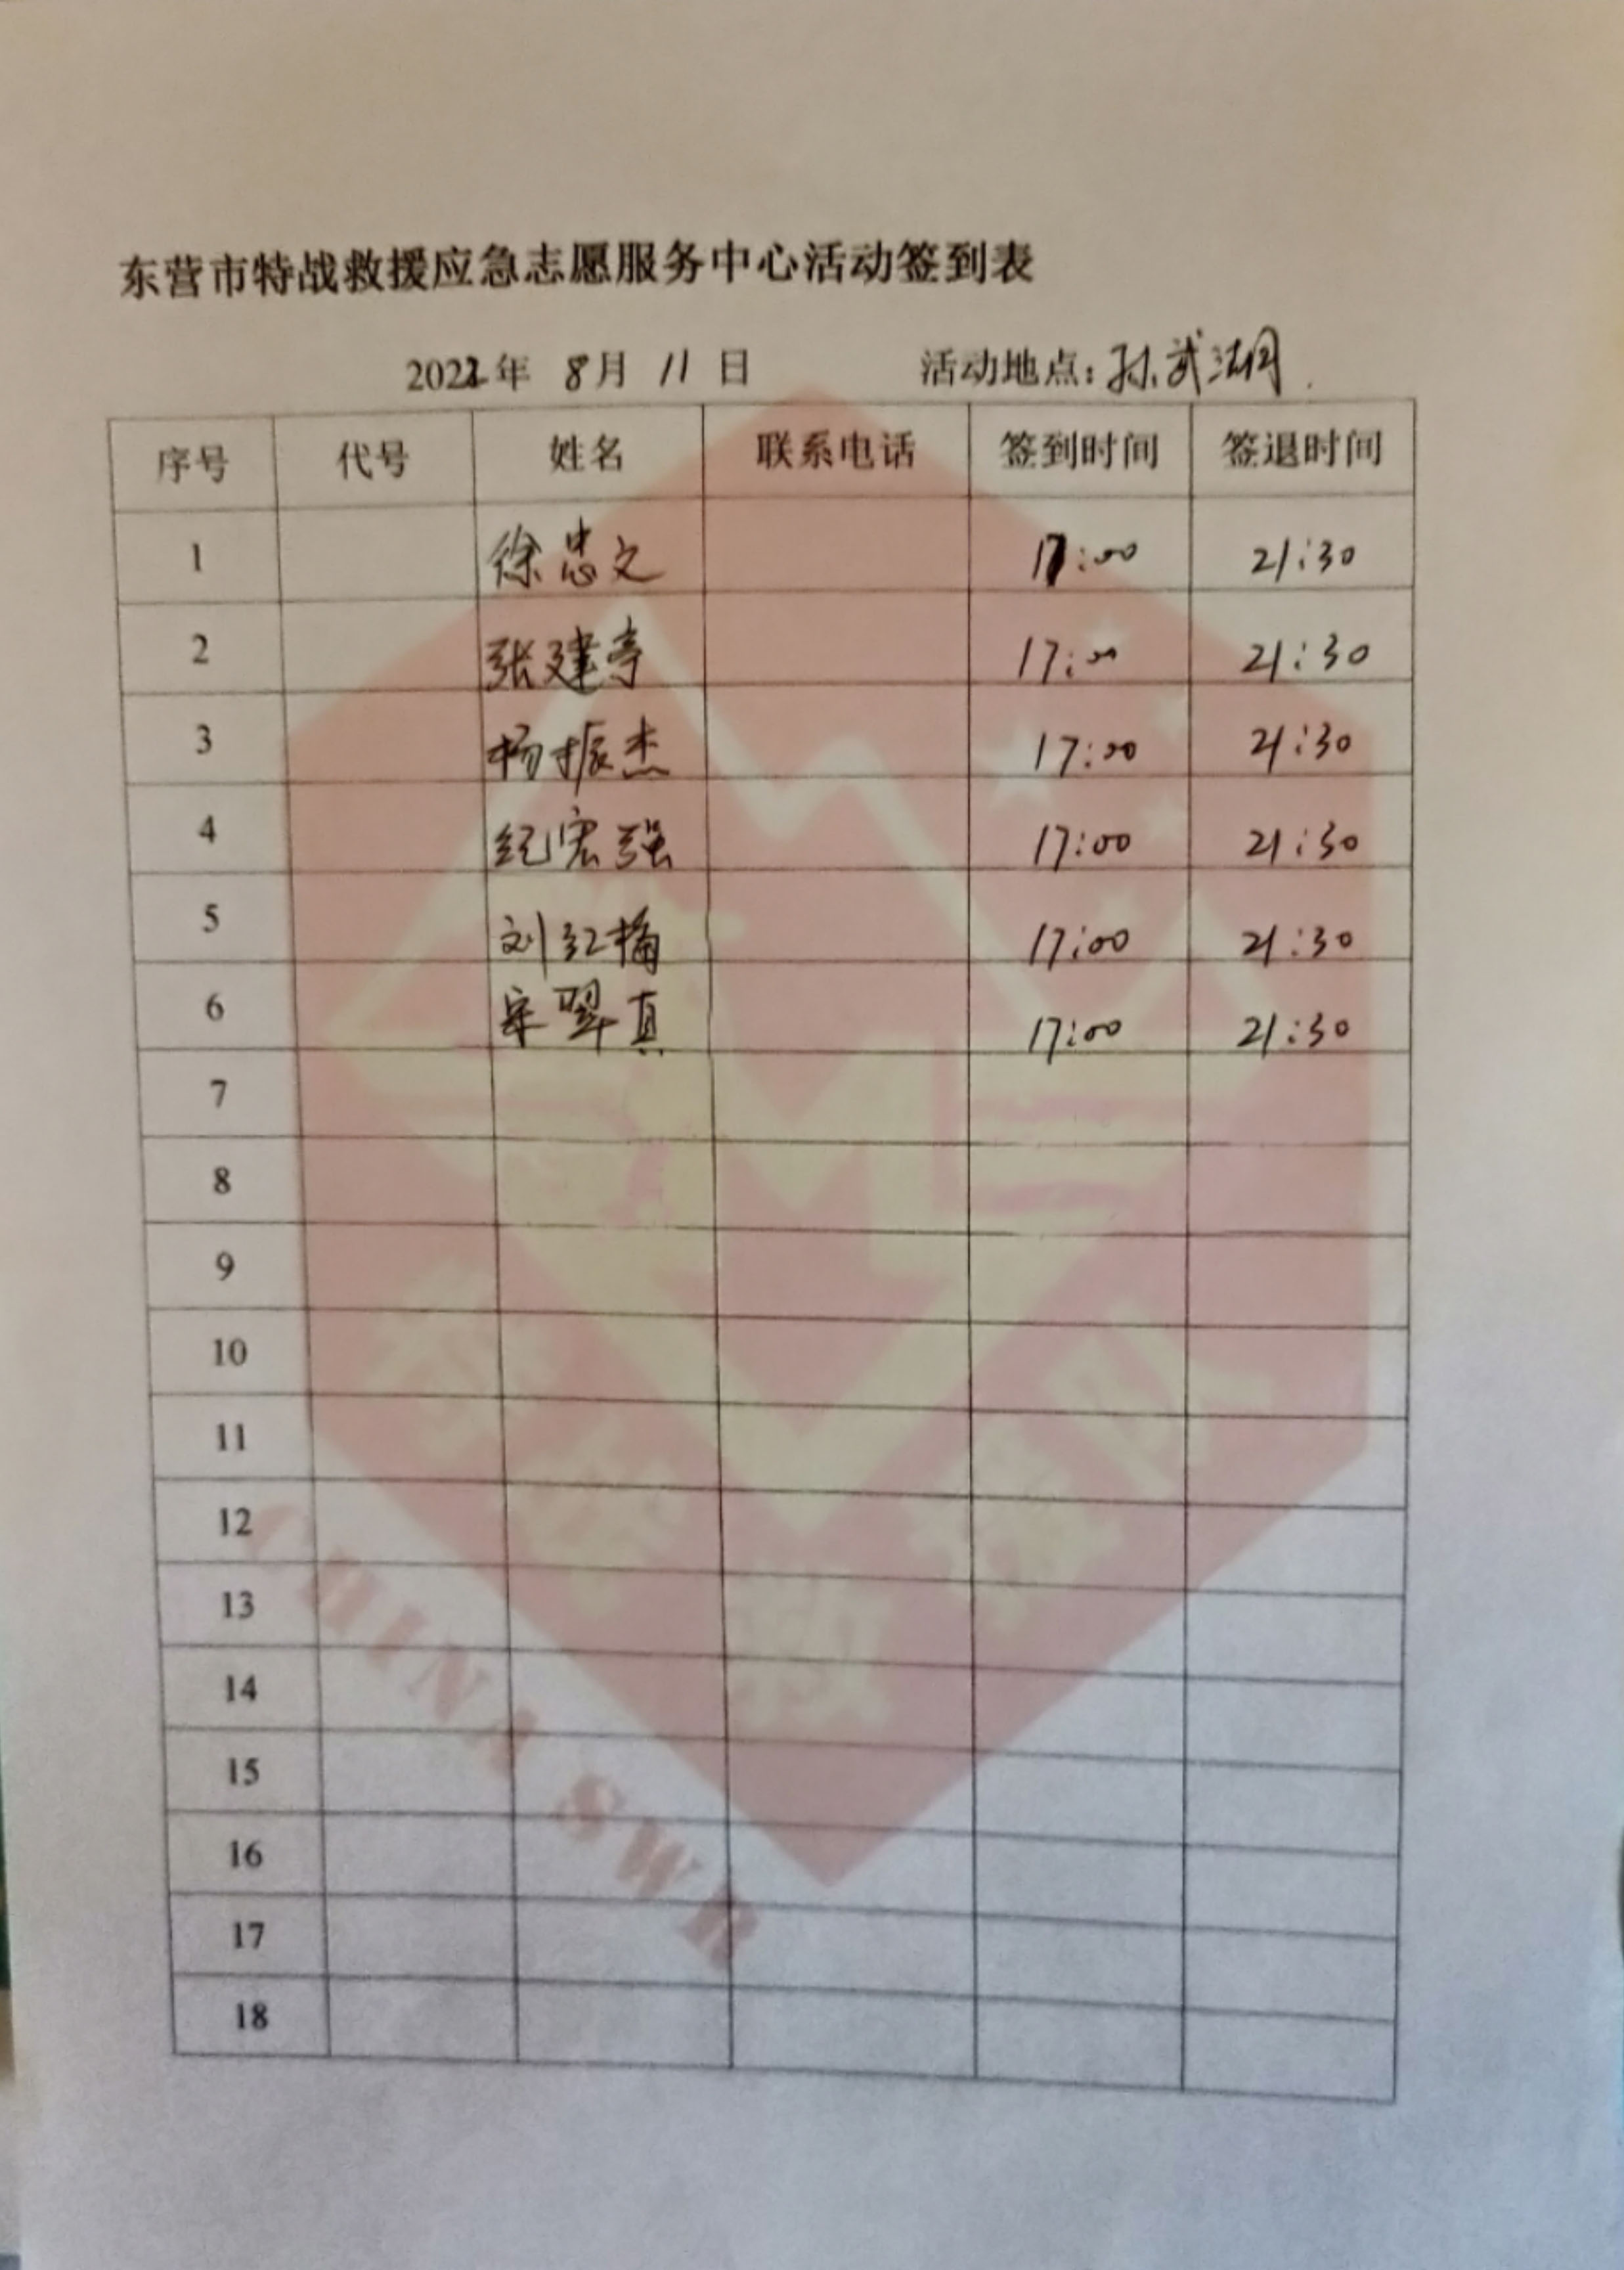 东营市特战救援应急志愿服务中心活动签到表
2022年 8月 11日 活动地点：孙武湖
序号 代号 姓名 联系电话 签到时间 签退时间
1 徐忠文 17:00 21:30
2 张建亭 17:00 21:30
3 杨振杰 17:00 21:30
4 纪宏强 17:00 21:30
5 刘红梅 17:00 21:30
6 17:00 21:30
7
8
9
10
11
12
13
14
15
16
17
18
特战救援队
CHINA SWR